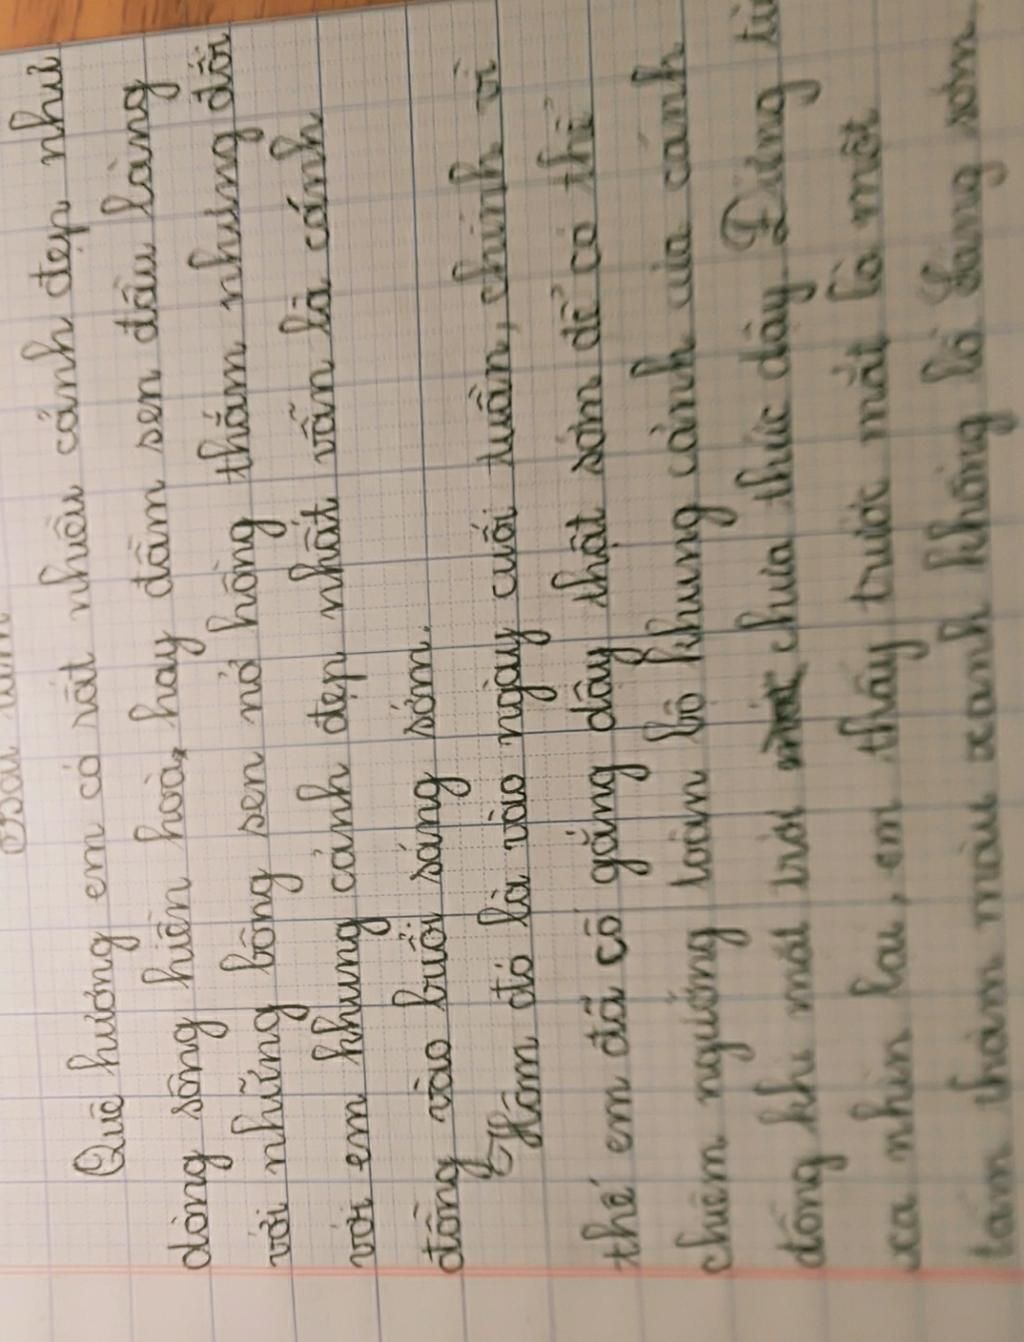 Bài làm
Quê hương em có rất nhều cảnh đẹp như
dòng sông hiền hoà, hay đầm sen đầu làng
với những bông sen nở hồng thắm nhưng đối
với em khung cảnh đẹp nhất vẫn là cánh
đồng vào buổi sáng sớm.
Hôm đó là vào ngày cuối tuần, chính vì
thế em đã cố gắng dậy thật sớm để có thể
chiêm ngưỡng toàn bộ khung cảnh của cánh
đồng khi mới trời chưa thức dậy. Đứng từ
xa nhìn lại, em thấy trước mắt là một
tấm thảm màu xanh khổng lồ. Sang sớm